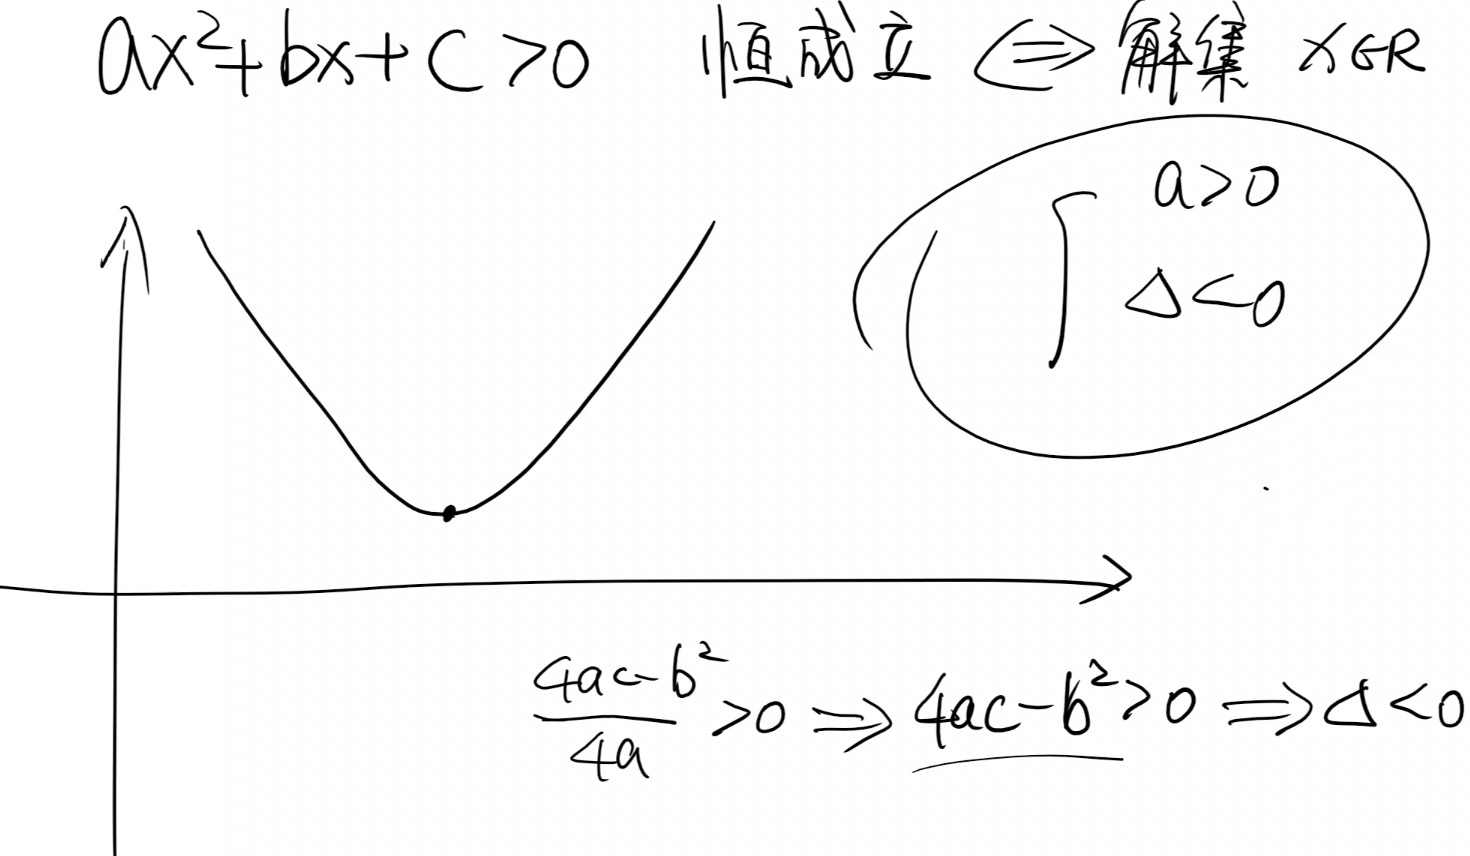 ax²+bx+c>0 恒成立 ⇔ 解集 x∈R
{ a>0
Δ<0
(4ac-b²)/4a >0 ⇒ 4ac-b²>0 ⇒ Δ<0